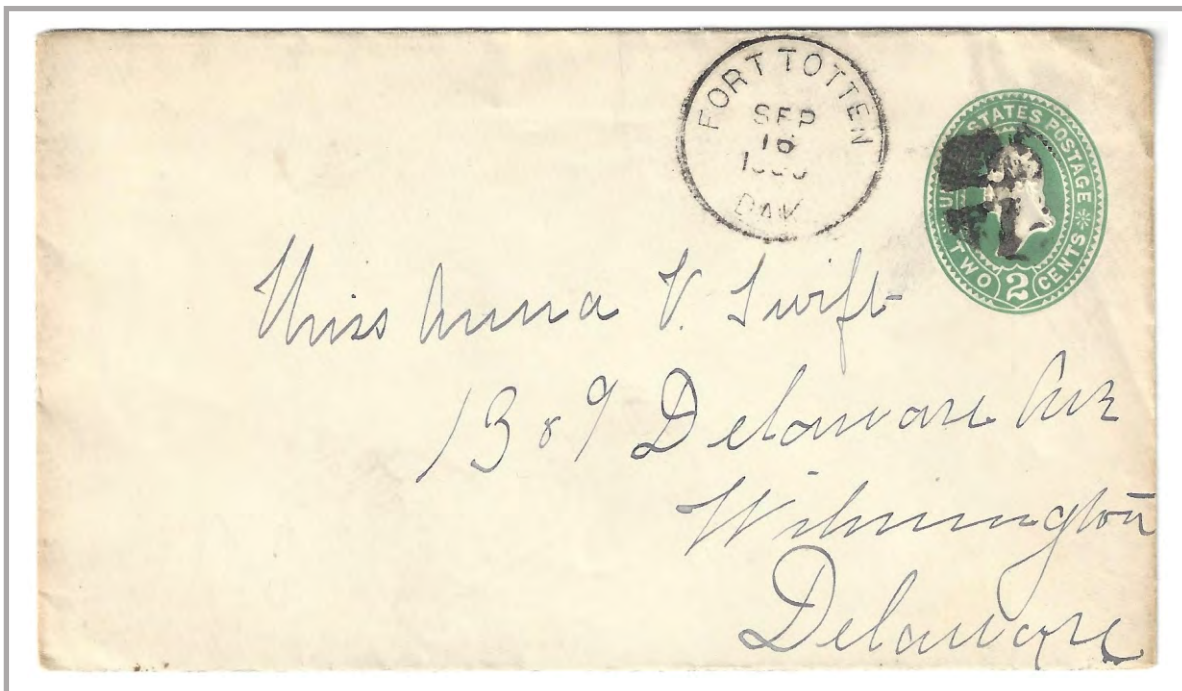 FORT TOTTEN
SEP
16
DAK
UNITED STATES POSTAGE
TWO 2 CENTS
Miss Anna V. Swift
1309 Delaware Ave
Wilmington
Delaware